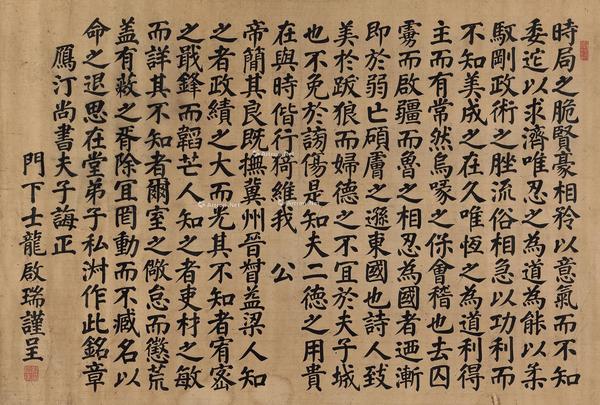 時局之脆賢豪相矜以意氣而不知
委迤以求濟唯忍之為道為能以柔
馭剛政術之脞流俗相急以功利而
不知美成之在久唯恆之為道利得
主而有常然烏喙之保會稽也去囚
虜而啟疆而魯之相忍為國者迺漸
即於弱亡碩膚之遜東國也詩人致
美於跋狼而婦德之不宜於夫子城
也不免於謗傷是知夫二德之用貴
在與時偕行猗維我 公
帝簡其良既撫冀州晉督益梁人知
之者政績之大而光其不知者宥密
之戢鋒而韜芒人知之者吏材之敏
而詳其不知者爾室之儆怠而懲荒
蓋有蔽之胥除宜罔動而不臧名以
命之退思在堂弟子私淑作此銘章
鴈汀尚書夫子誨正
門下士龍啟瑞謹呈